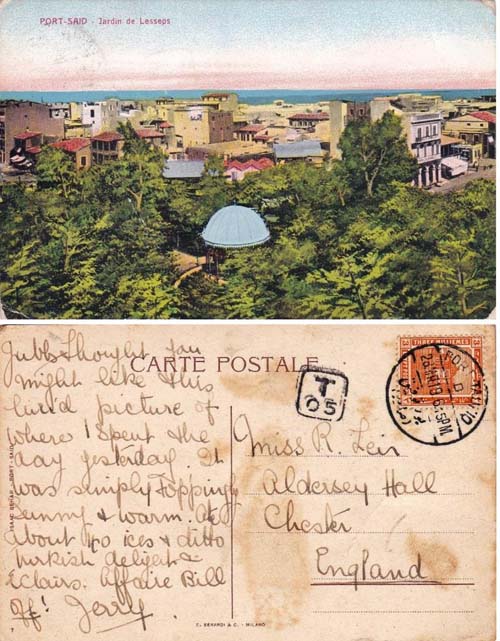 PORT-SAID - Jardin de Lesseps
CARTE POSTALE
thought you
might like this
lurid picture of
where I spent the
day yesterday. It
was simply topping
sunny & warm. Ate
about 40 ices & ditto
turkish delight &
Eclairs. Affaire Bill
off! Jerry
T
05
THREE MILLIEMES
PORT
Miss R. Leir
Aldersey Hall
Chester
England
C. BERARDI & C. - MILANO